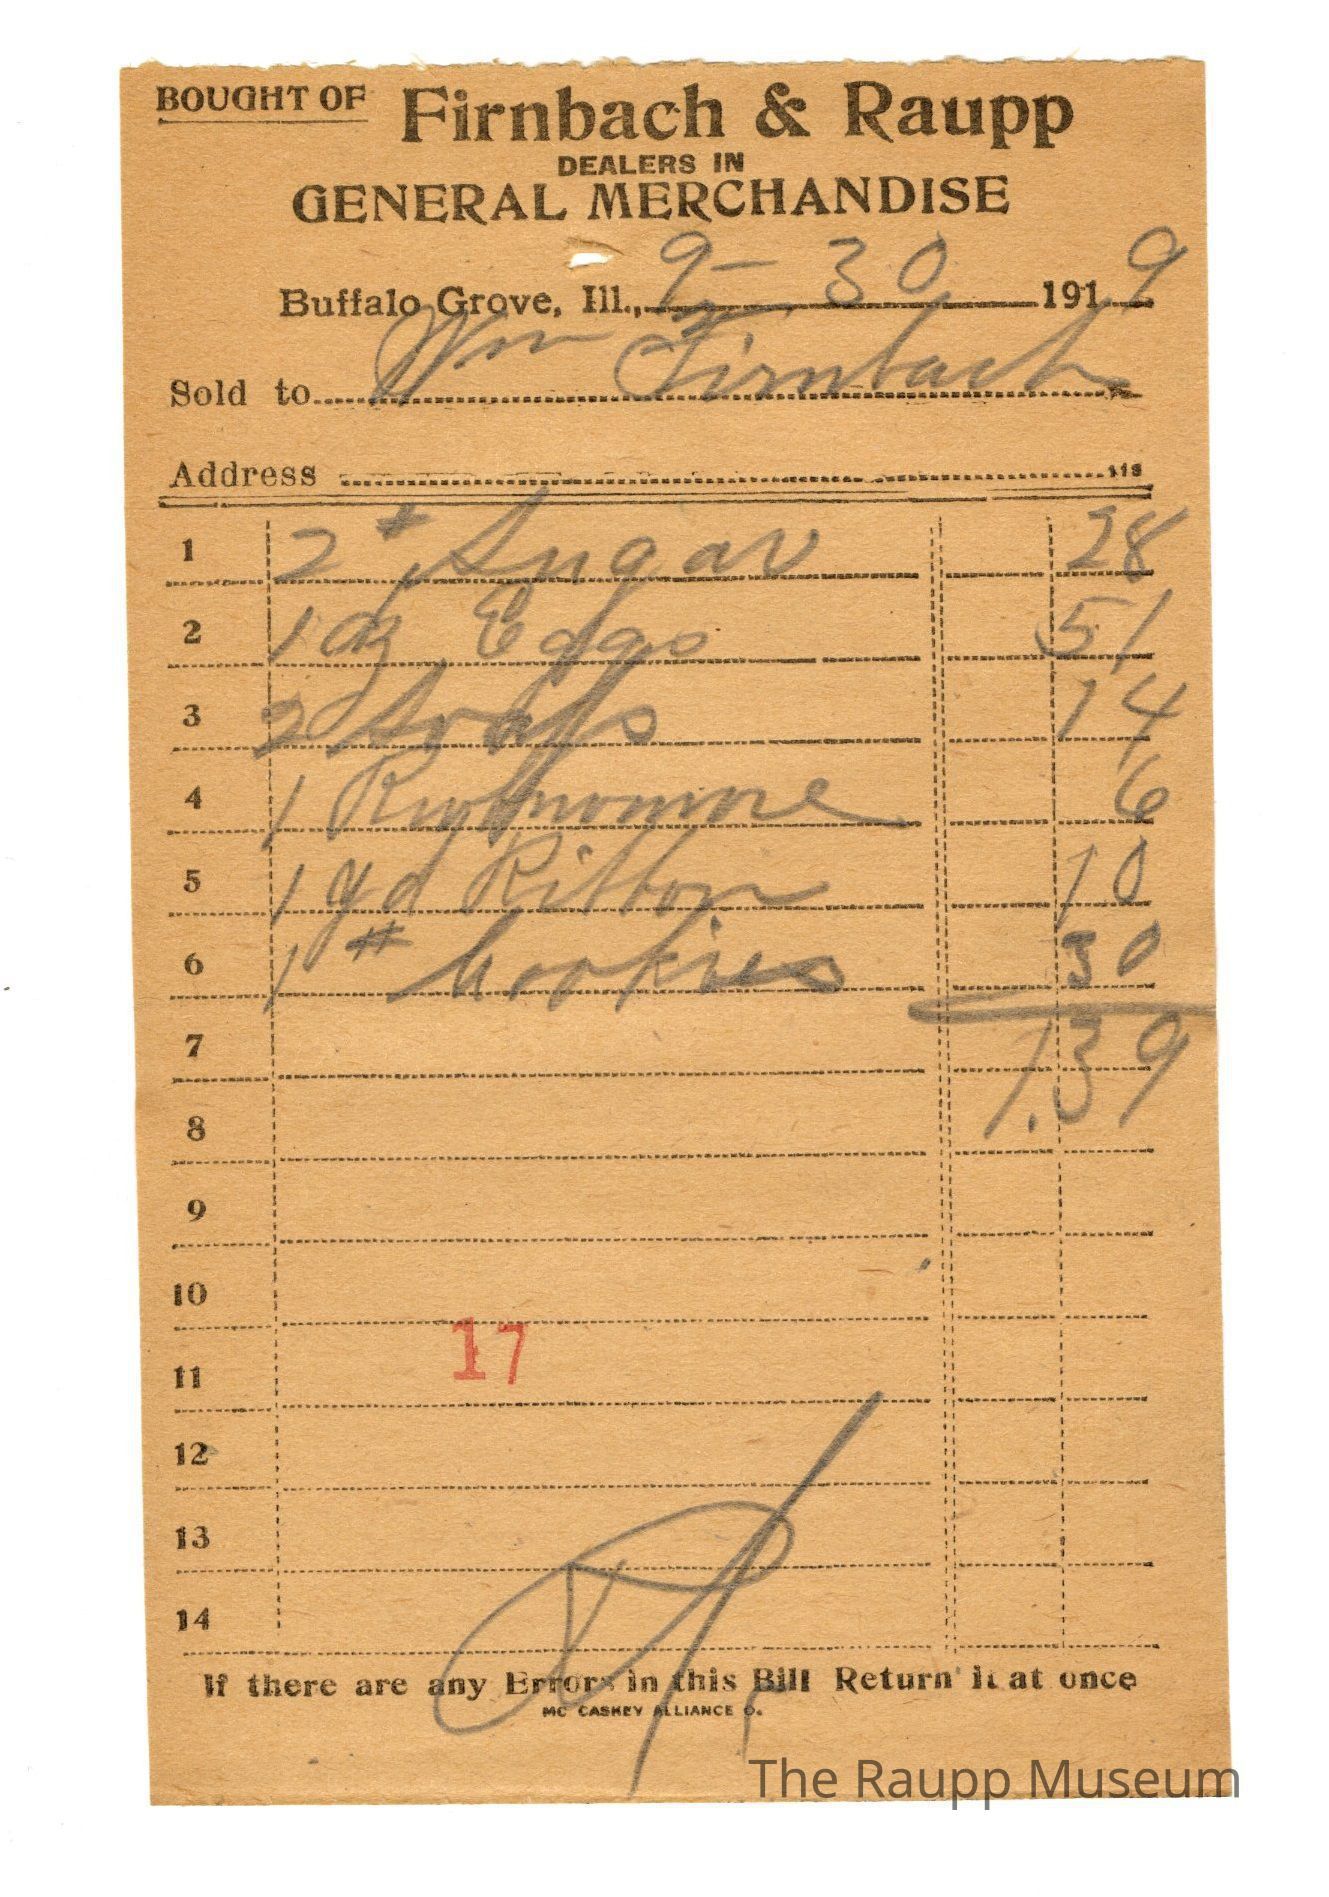 BOUGHT OF Firnbach & Raupp
DEALERS IN
GENERAL MERCHANDISE
Buffalo Grove, Ill., 9-30 1919
Sold to Wm Firnbach
Address
1 2 # Sugar 28
2 1 dz Eggs 51
3 2 Soaps 14
4 1 6
5 1 yd Ribbon 10
6 1 # Cookies 30
7 1.39
8
9
10
17
11
12
13
14
If there are any Errors in this Bill Return it at once
MC CASKEY ALLIANCE O.
The Raupp Museum